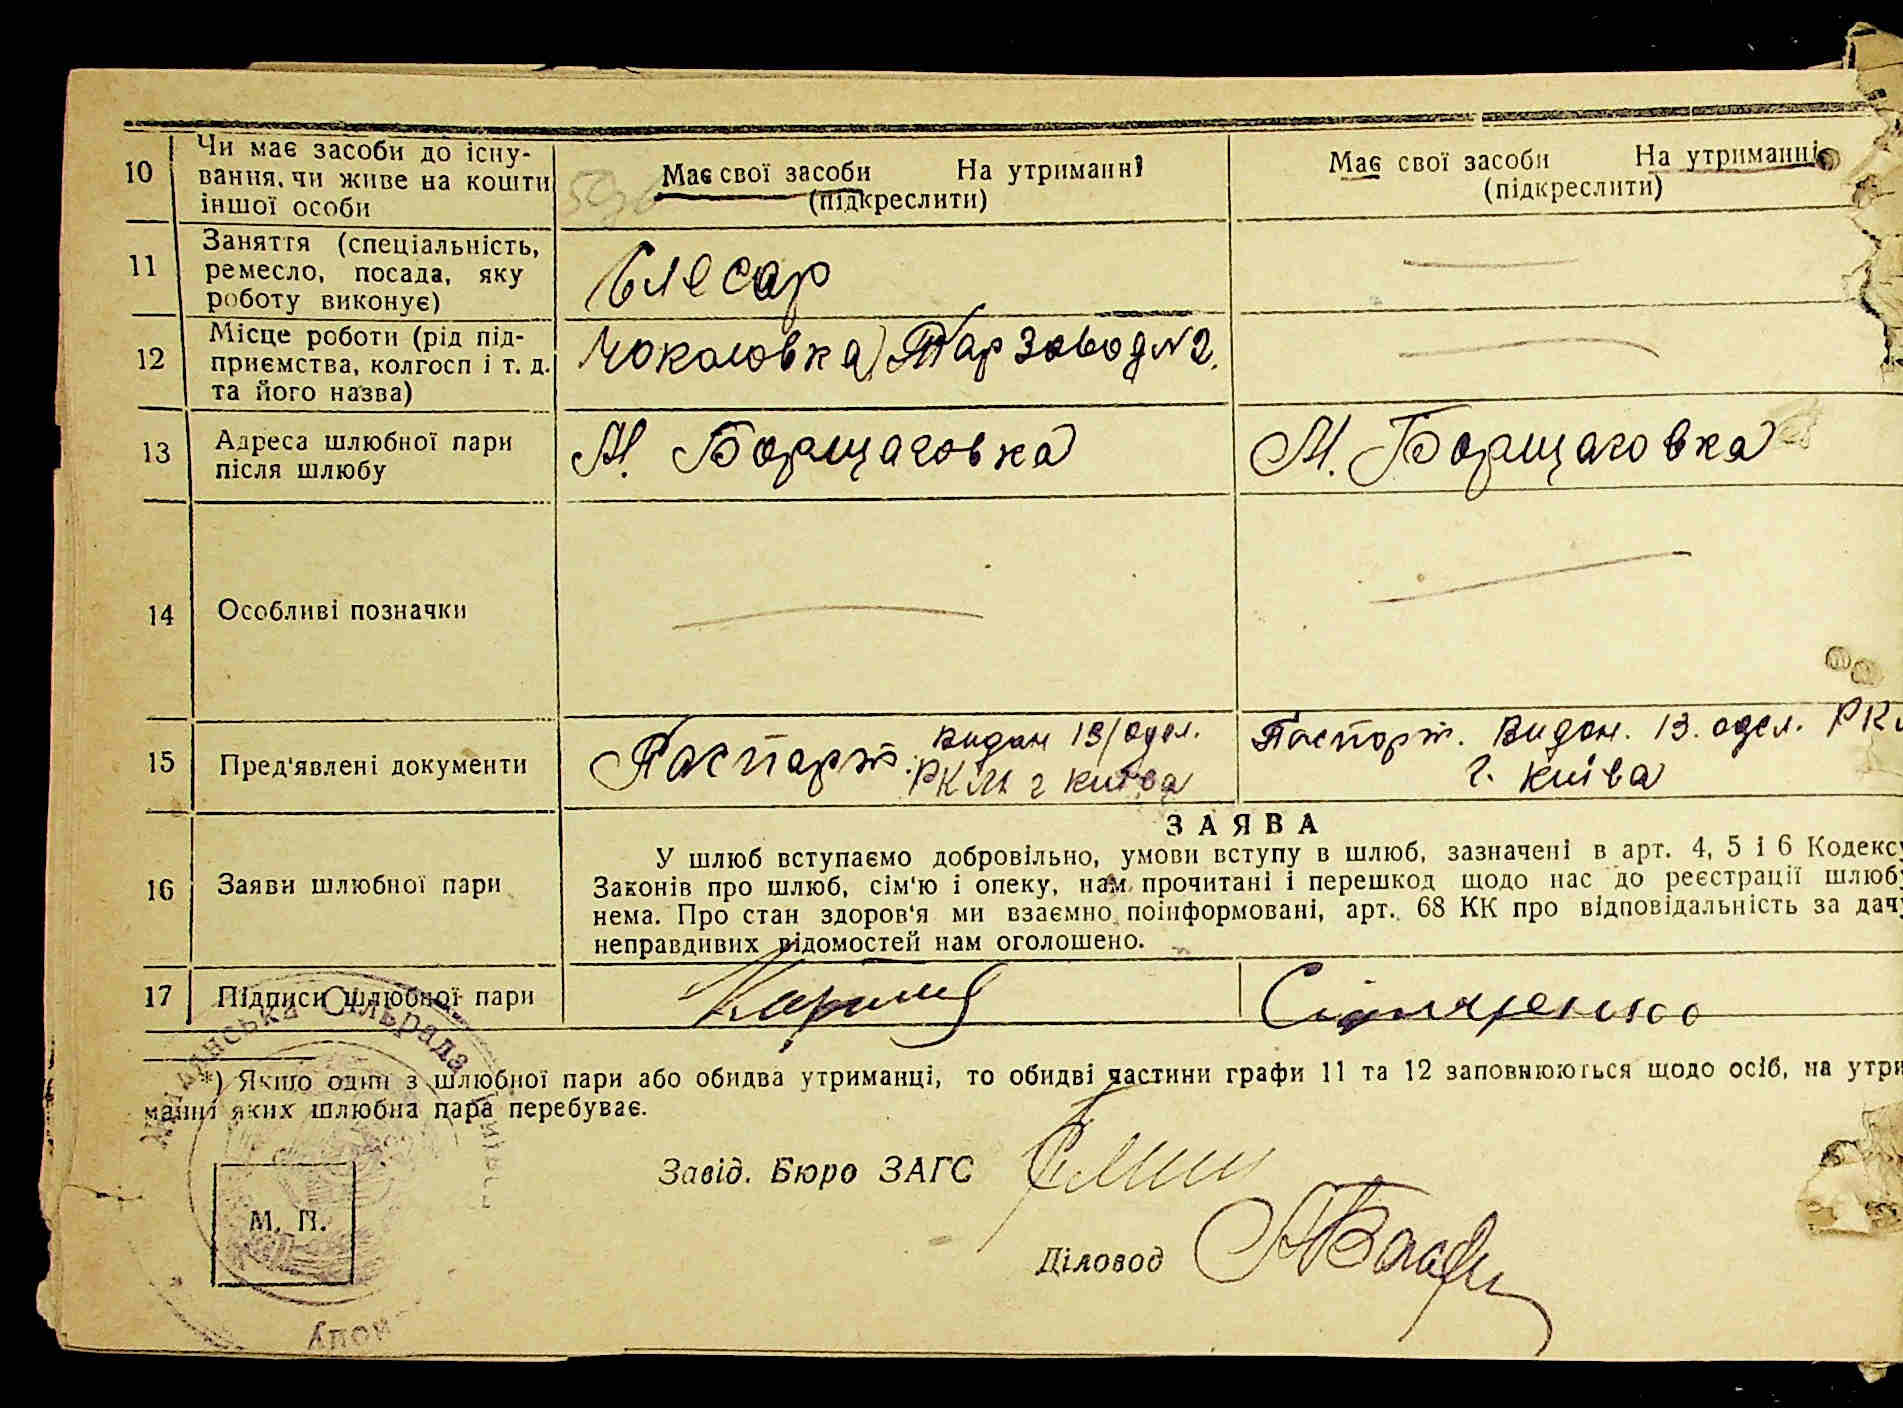 10 Чи має засоби до існу-
вання, чи живе на кошти
іншої особи
Має свої засоби На утриманні
(підкреслити)
Має свої засоби На утриманні
(підкреслити)
11 Заняття (спеціальність,
ремесло, посада, яку
роботу виконує)
Слєсар
12 Місце роботи (рід під-
приємства, колгосп і т. д.
та його назва)
Чоколовка, Тар Завод №2.
13 Адреса шлюбної пари
після шлюбу
М. Борщаговка
М. Борщаговка
14 Особливі позначки
15 Пред'явлені документи
Паспорт. видан 13/одел.
РКМ г Київа
Паспорт. Видан. 13. одел. РКМ
г. Київа
З А Я В А
16 Заяви шлюбної пари
У шлюб вступаємо добровільно, умови вступу в шлюб, зазначені в арт. 4, 5 і 6 Кодексу
Законів про шлюб, сім'ю і опеку, нам прочитані і перешкод щодо нас до реєстрації шлюбу
нема. Про стан здоров'я ми взаємно поінформовані, арт. 68 КК про відповідальність за дачу
неправдивих відомостей нам оголошено.
17 Підписи шлюбної пари
*) Якщо один з шлюбної пари або обидва утриманці, то обидві частини графи 11 та 12 заповнюються щодо осіб, на утри
манні яких шлюбна пара перебуває.
Сільрада
Завід. Бюро ЗАГС
М. П.
Діловод